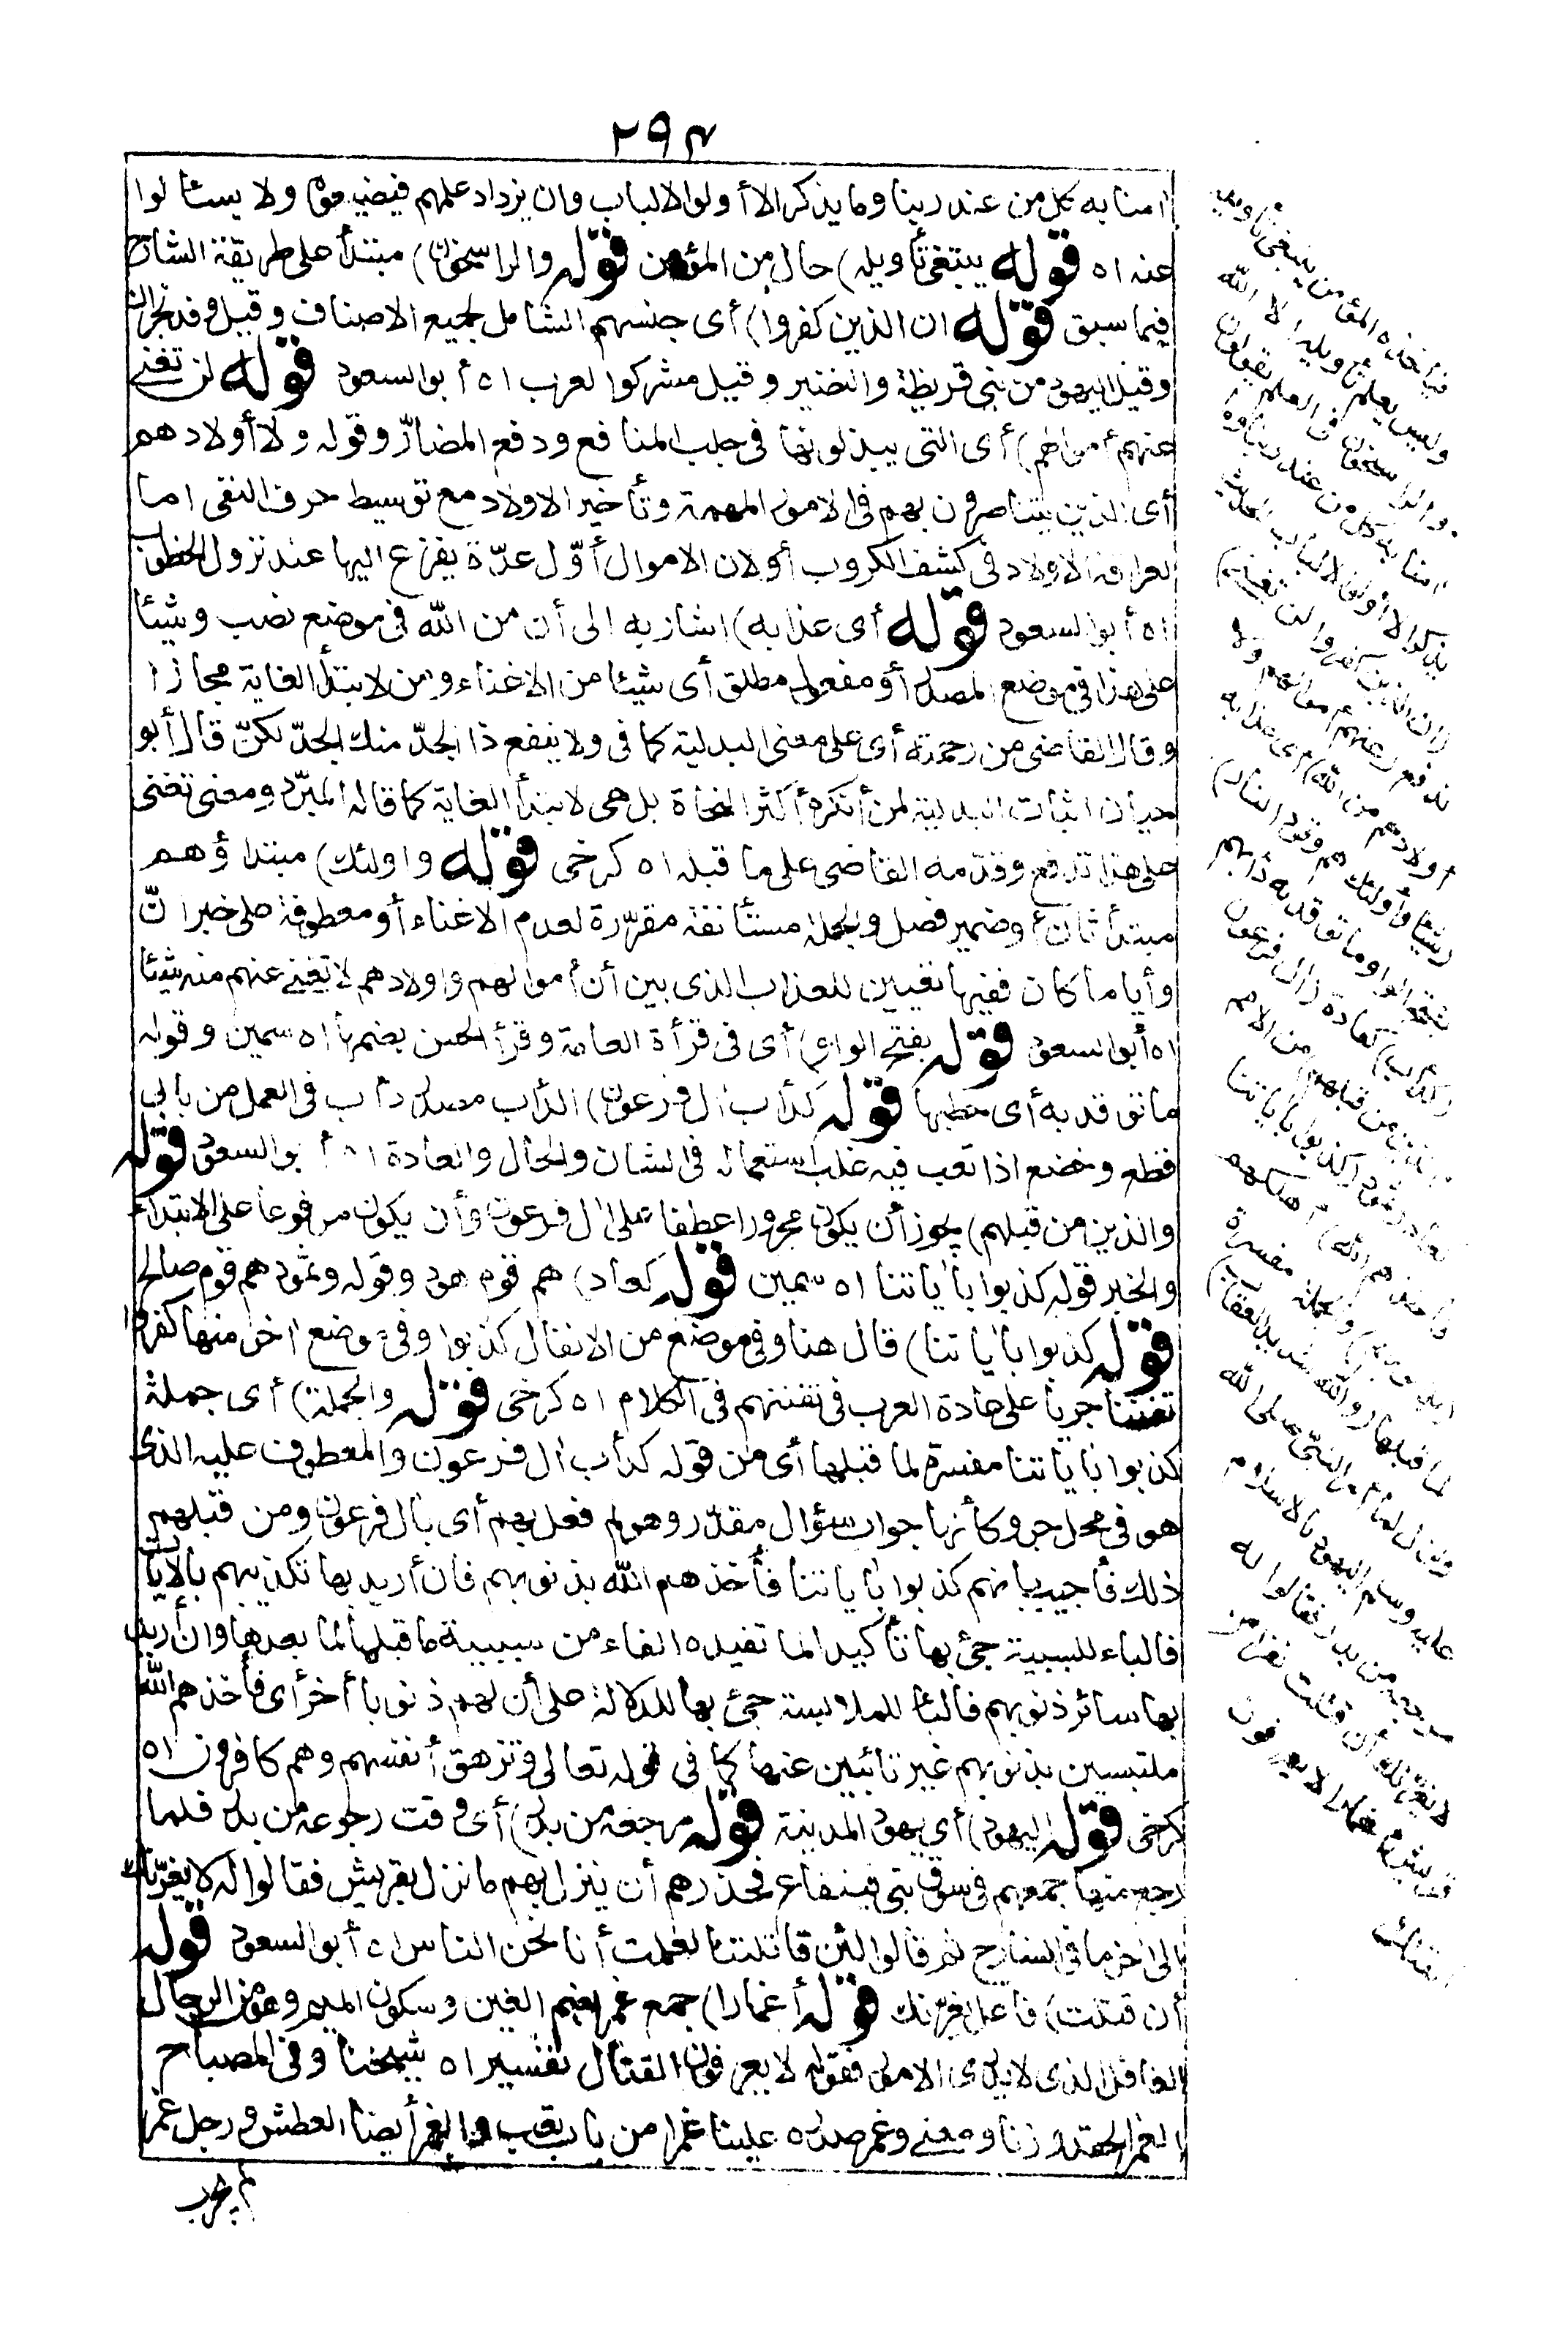 ٢٩٤
امنا به كل من عند ربنا وما يذكر الا أولوا الالباب وان يزداد علمهم فيضيعوه ولا يسئالوا
عنه اه قوله يبتغى تأويله) حال من المؤمن قوله والراسخون) مبتدأ على طريقة الشارح
فيما سبق قوله ان الذين كفروا) أى جنسهم الشامل لجميع الاصناف وقيل وفد نجران
وقيل اليهود من بنى قريظة والنضير وقيل مشركوا العرب اه أبو السعود قوله لن تغنى
عنهم أموالهم) أى التى يبذلونها فى جلب المنافع ودفع المضارّ وقوله ولا أولادهم
أى الذين يتناصرون بهم فى الامور المهمة وتأخير الاولاد مع توسيط حرف النفى اما
لعراقة الاولاد فى كشف الكروب أو لان الاموال أوّل عدّة يفزع اليها عند نزول الخطوب
اه أبو السعود قوله أى عذابه) اشار به الى أن من الله فى موضع نصب وشيئا
على هذا فى موضع المصدر أو مفعول مطلق أى شيئا من الاغناء ومن لابتدأ الغاية مجازا
وقال القاضى من رحمته أى على معنى البدلية كما فى ولا ينفع ذا الجدّ منك الجدّ لكنّ قال أبو
حيان اثبات البدلية لمن أنكره أكثر النحاة بل هى لابتدأ الغاية كما قاله المبرّد ومعنى تغنى
على هذا تدفع وقدّمه القاضى على ما قبله اه كرخى قوله واولئك) مبتدا وهم
مبتدأ ثان أو ضمير فصل والجملة مستأنفة مقرّرة لعدم الاغناء أو معطوفة على خبر انّ
وأيا ما كان ففيها تعيين للعذاب الذى بين أن أموالهم واولادهم لا تغنى عنهم منه شيئا
اه أبو السعود قوله بفتح الواو) أى فى قرأة العامة وقرأ الحسن بضمها اه سمين وقوله
ما توقد به أى حطبها قوله كدأب ال فرعون) الدأب مصدر دأب فى العمل من بابى
قطع وخضع اذا تعب فيه غلب استعماله فى الشان والحال والعادة اه أبو السعود قوله
والذين من قبلهم) يجوز أن يكون مجرورا عطفا على ال فرعون وأن يكون مرفوعا على الابتداء
والخبر قوله كذبوا باياتنا اه سمين قوله كعاد) هم قوم هود وقوله وثمود هم قوم صالح
قوله كذبوا باياتنا) قال هنا وفى موضع من الانفال كذبوا وفى موضع اخر منها كفروا
تفننا جريا على عادة العرب فى تفننهم فى الكلام اه كرخى قوله والجملة) أى جملة
كذبوا باياتنا مفسرة لما قبلها أى من قوله كدأب ال فرعون والمعطوف عليه الذى
هو فى محل جر وكأنها جواب سؤال مقدّر وهو لم فعل بهم أى بال فرعون ومن قبلهم
ذلك فأجيب بانهم كذبوا باياتنا فأخذهم الله بذنوبهم فان أريد بها تكذيبهم بالايات
فالباء للسببية جئ بها تأكيدا لما تفيده الفاء من سببية ما قبلها لما بعدها وان أريد
بها سائر ذنوبهم فالبا للملابسة جئ بها للدلالة على أن لهم ذنوبا أخر أى فأخذهم الله
ملتبسين بذنوبهم غير تائبين عنها كما فى قوله تعالى وتزهق أنفسهم وهم كافرون اه
كرخى قوله اليهود) أى يهود المدينة قوله مرجعه من بدر) أى وقت رجوعه من بدر فلما
رجع منها جمعهم فى سوق بنى قينقاع فحذرهم أن ينزل بهم ما نزل بقريش فقالوا له لا يغرّنك
الى اخر ما فى الشارح ثم قالوا لئن قاتلتنا لعلمت أنا نحن الناس اه أبو السعود قوله
أن قتلت) فاعل يغرّنك قوله أغمارا) جمع غمر بضم الغين وسكون الميم وهو من الرجال
الغافل الذى لا يدرى الامور فقوله لا يعرفون القتال تفسير اه شيخنا وفى المصباح
الغمر الحقد وزنا ومعنى وغمر صدره علينا غمرا من باب تعب والغمر أيضا العطش ورجل غمر
لم يجرب
فيأخذه المؤمن يبتغى تأويله
وليس يعلم تأويله الا الله
والراسخون فى العلم يقولون
امنا به كل من عند ربنا وما
يذكر الا أولوا الالباب الحديث
(ان الذين كفروا لن تغنى)
تدفع (عنهم أموالهم ولا
أولادهم من الله) أى عذابه
(شيئا وأولئك هم وقود النار)
بفتح الواو ما توقد به دأبهم
(كدأب) كعادة (ال فرعون
والذين من قبلهم) من الامم
كعاد وثمود (كذبوا باياتنا
فأخذهم الله) أهلكهم
(بذنوبهم) والجملة مفسرة
لما قبلها (والله شديد العقاب)
ونزل لما أمر النبىّ صلى الله
عليه وسلم اليهود بالاسلام
مرجعه من بدر فقالوا له
لا يغرّنك أن قتلت نفرا من
قريش أغمارا لا يعرفون
القتال